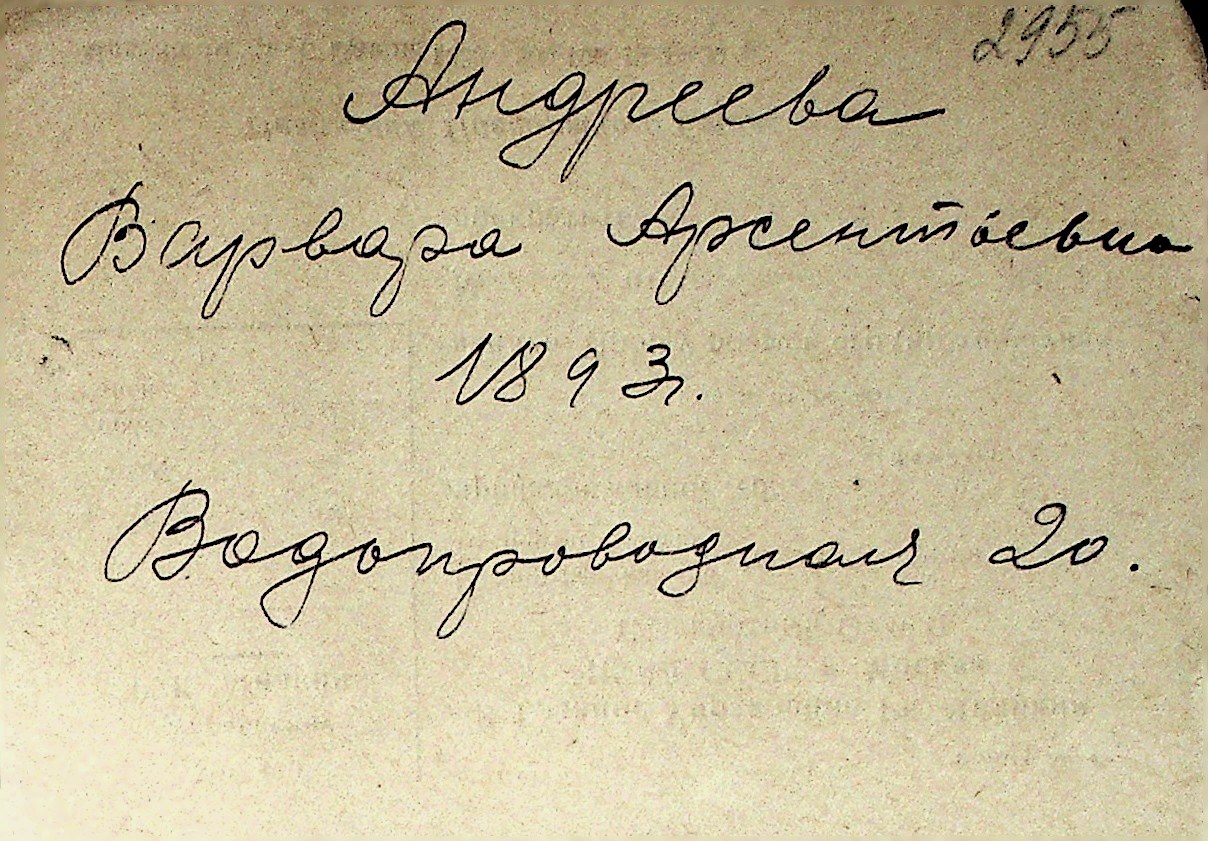 2955
Андреева
Варвара Арсентьевна
1893г.
Водопроводная 20.